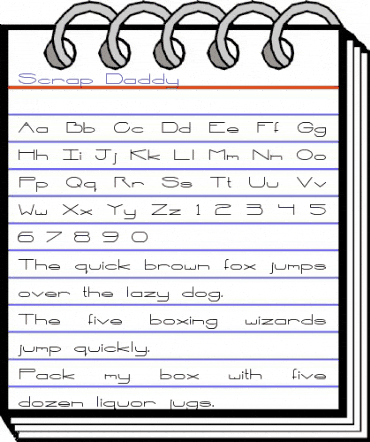 Scrap Daddy
Aa Bb Cc Dd Ee Ff Gg
Hh Ii Jj Kk Ll Mm Nn Oo
Pp Qq Rr Ss Tt Uu Vv
Ww Xx Yy Zz 1 2 3 4 5
6 7 8 9 0
The quick brown fox jumps
over the lazy dog.
The five boxing wizards
jump quickly.
Pack my box with five
dozen liquor jugs.